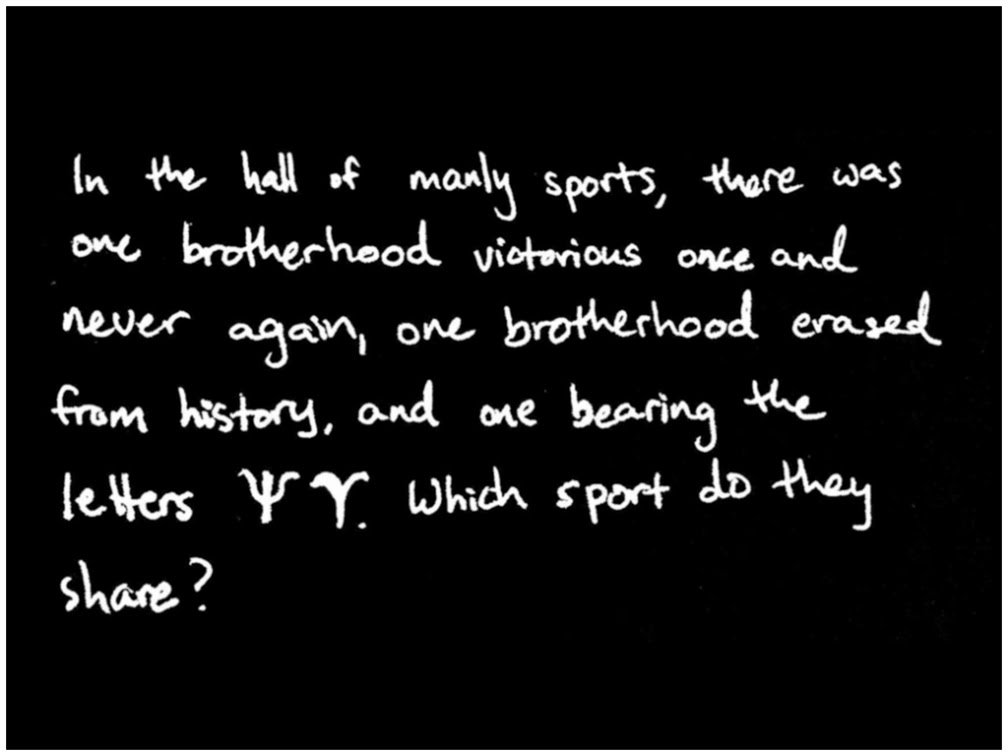 In the hall of manly sports, there was
one brotherhood victorious once and
never again, one brotherhood erased
from history, and one bearing the
letters Ψϒ. Which sport do they
share?